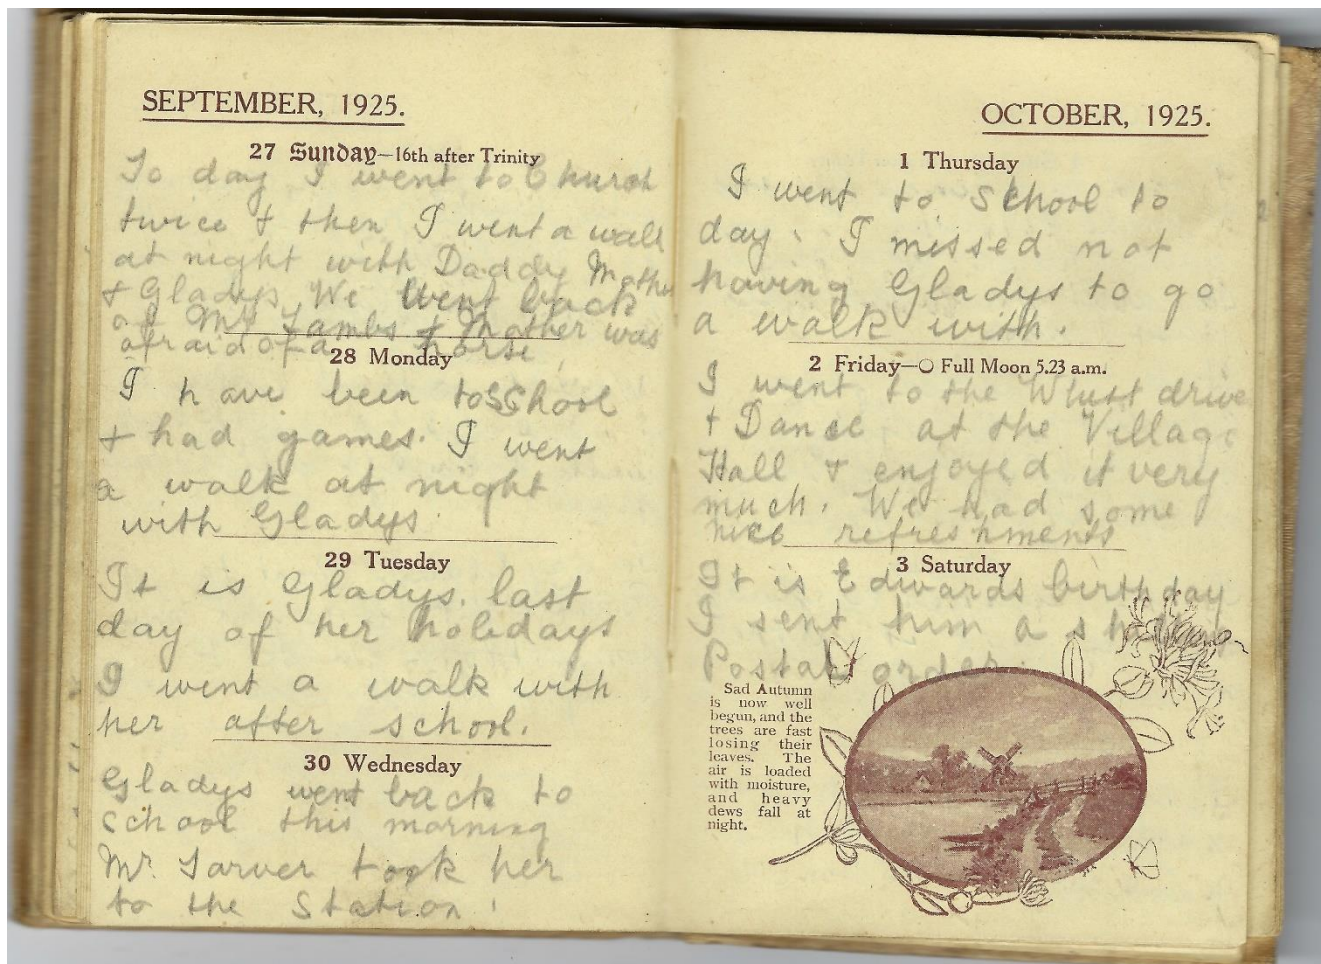 SEPTEMBER, 1925.
27 Sunday—16th after Trinity
To day I went to Church
twice & then I went a walk
at night with Daddy Mother
& Gladys We went back
at Mr Lambs & Mother was
afraid of a horse
28 Monday
I have been to School
& had games. I went
a walk at night
with Gladys.
29 Tuesday
It is Gladys. last
day of her holidays
I went a walk with
her after school.
30 Wednesday
Gladys went back to
school this morning
Mr. Tarver took her
to the Station.
OCTOBER, 1925.
1 Thursday
I went to School to
day. I missed not
having Gladys to go
a walk with.
2 Friday—○ Full Moon 5.23 a.m.
I went to the Whist drive
& Dance at the Village
Hall & enjoyed it very
much. We had some
nice refreshments
3 Saturday
It is Edwards birthday
I sent him a
Postal order.
Sad Autumn
is now well
begun, and the
trees are fast
losing their
leaves. The
air is loaded
with moisture,
and heavy
dews fall at
night.